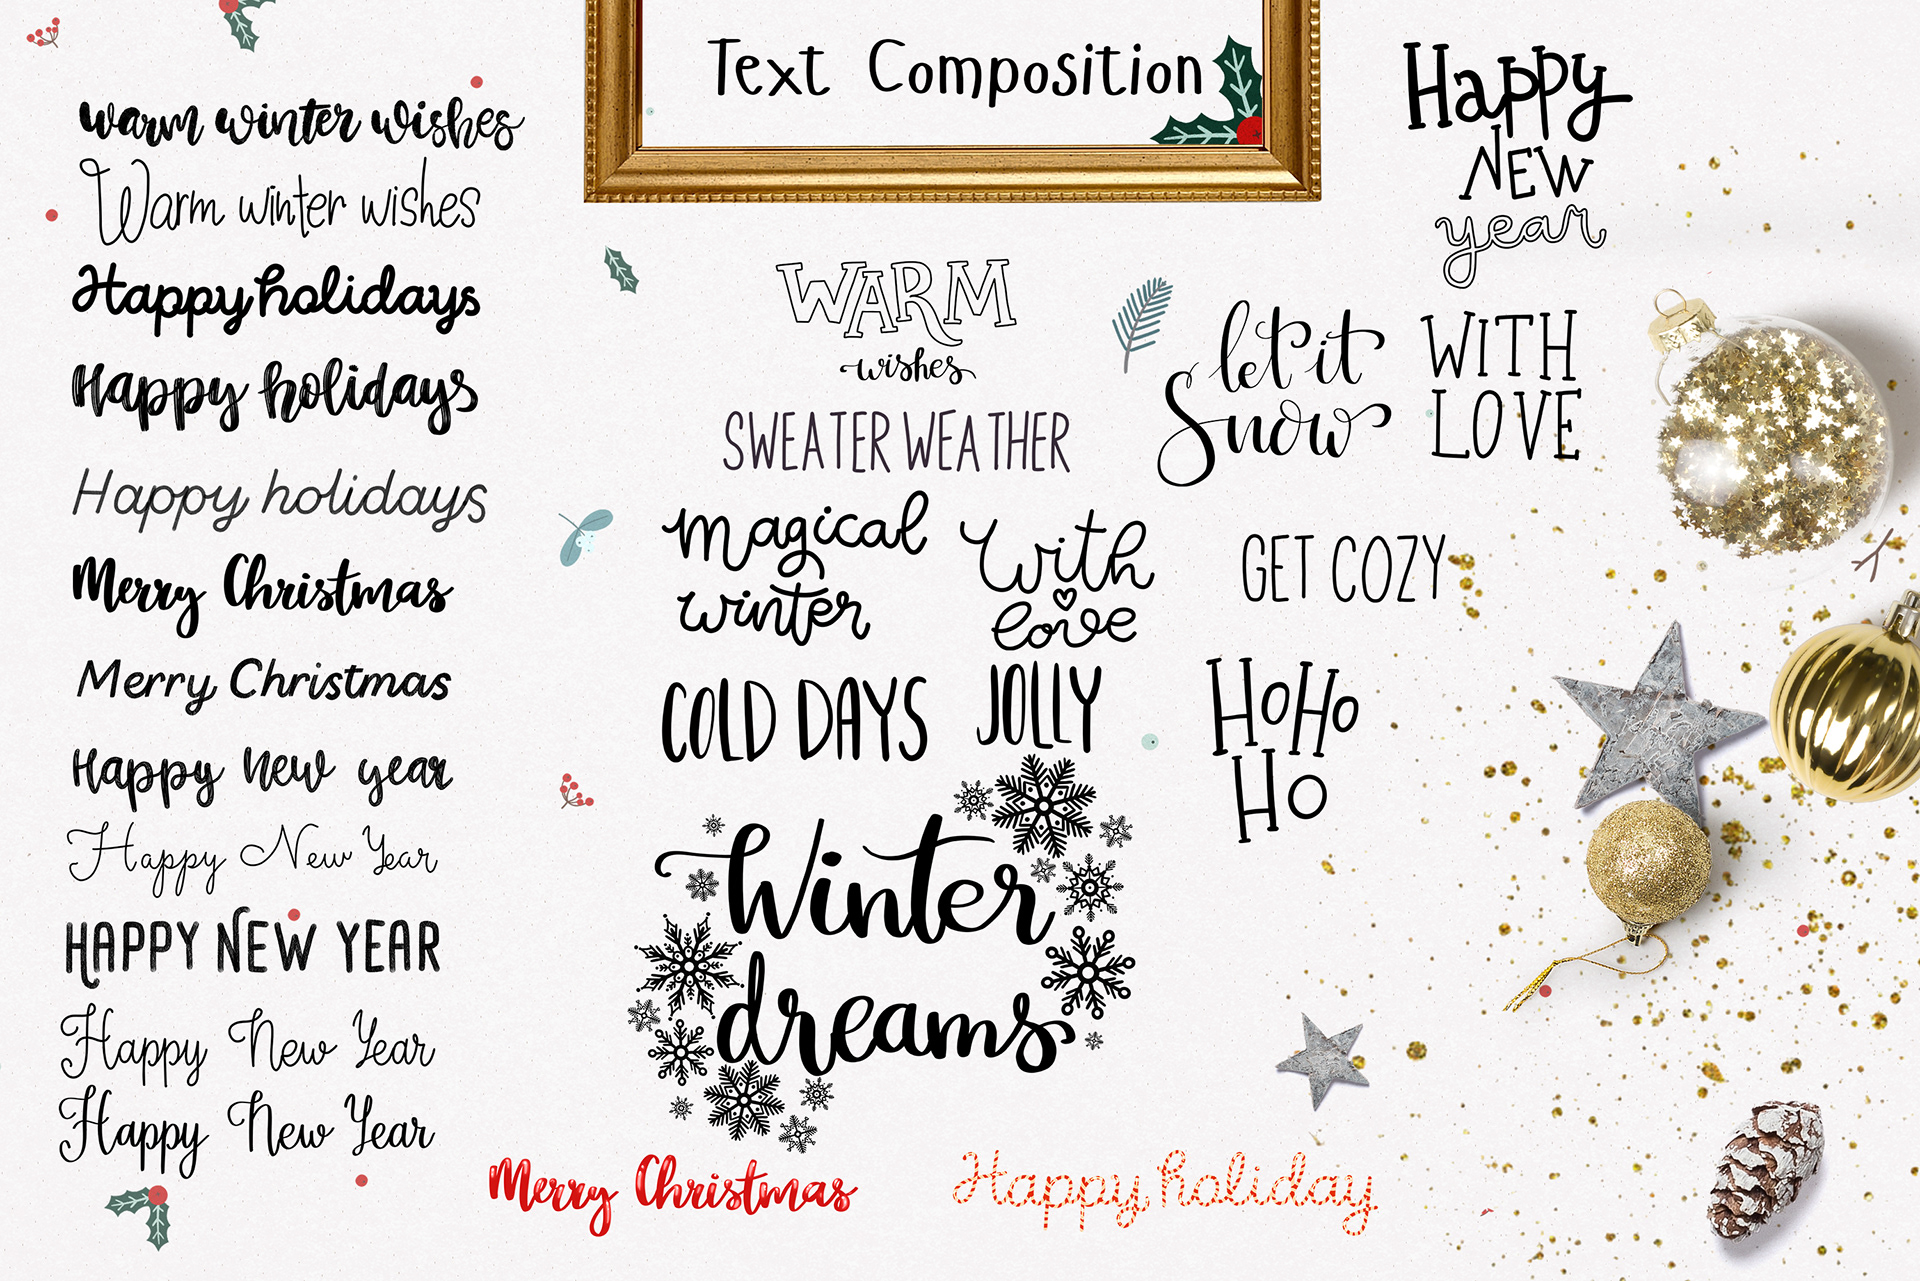 Text Composition
warm winter wishes
Warm winter wishes
Happy holidays
Happy holidays
Happy holidays
Merry Christmas
Merry Christmas
Happy new year
Happy New Year
HAPPY NEW YEAR
Happy New Year
Happy New Year
WARM
wishes
SWEATER WEATHER
magical
winter
With
love
COLD DAYS
JOLLY
Winter
dreams
Happy
NEW
year
let it
Snow
WITH
LOVE
GET COZY
HoHo
Ho
Merry Christmas
Happy holiday